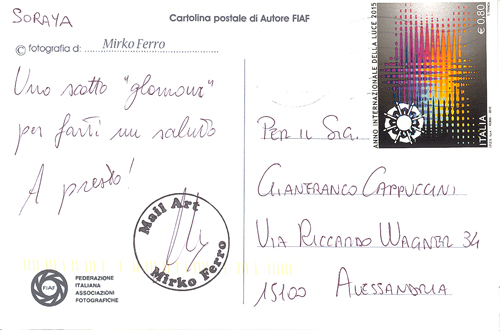 SORAYA
Cartolina postale di Autore FIAF
© fotografia di: Mirko Ferro
Uno scatto "glamour"
per farti un saluto
A presto!
Mail Art
Mirko Ferro
FIAF
FEDERAZIONE
ITALIANA
ASSOCIAZIONI
FOTOGRAFICHE
ANNO INTERNAZIONALE DELLA LUCE 2015
€ 0,80
ITALIA
PER IL SIG.
GIANFRANCO CAPPUCCINI
VIA RICCARDO WAGNER 34
15100 ALESSANDRIA